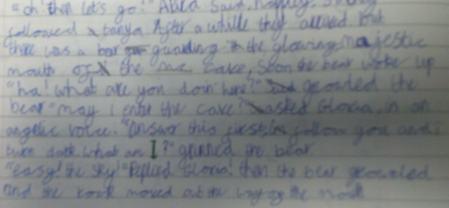 "oh then let's go!" Abica said, happily.
followed tanya After a while they arrived but
there was a bear guarding the glowing majestic
mouth of the cave, Soon the bear woke up
"ha! what are you doin' here?" growled the
bear "may i enter the cave?" asked Gloria, in an
angelic voice. "answer this first, i'm follow you and i
turn dark what am I?" grinned the bear
"easy! the sky!" Replied Gloria! then the bear growled
and the rock moved out the way of the